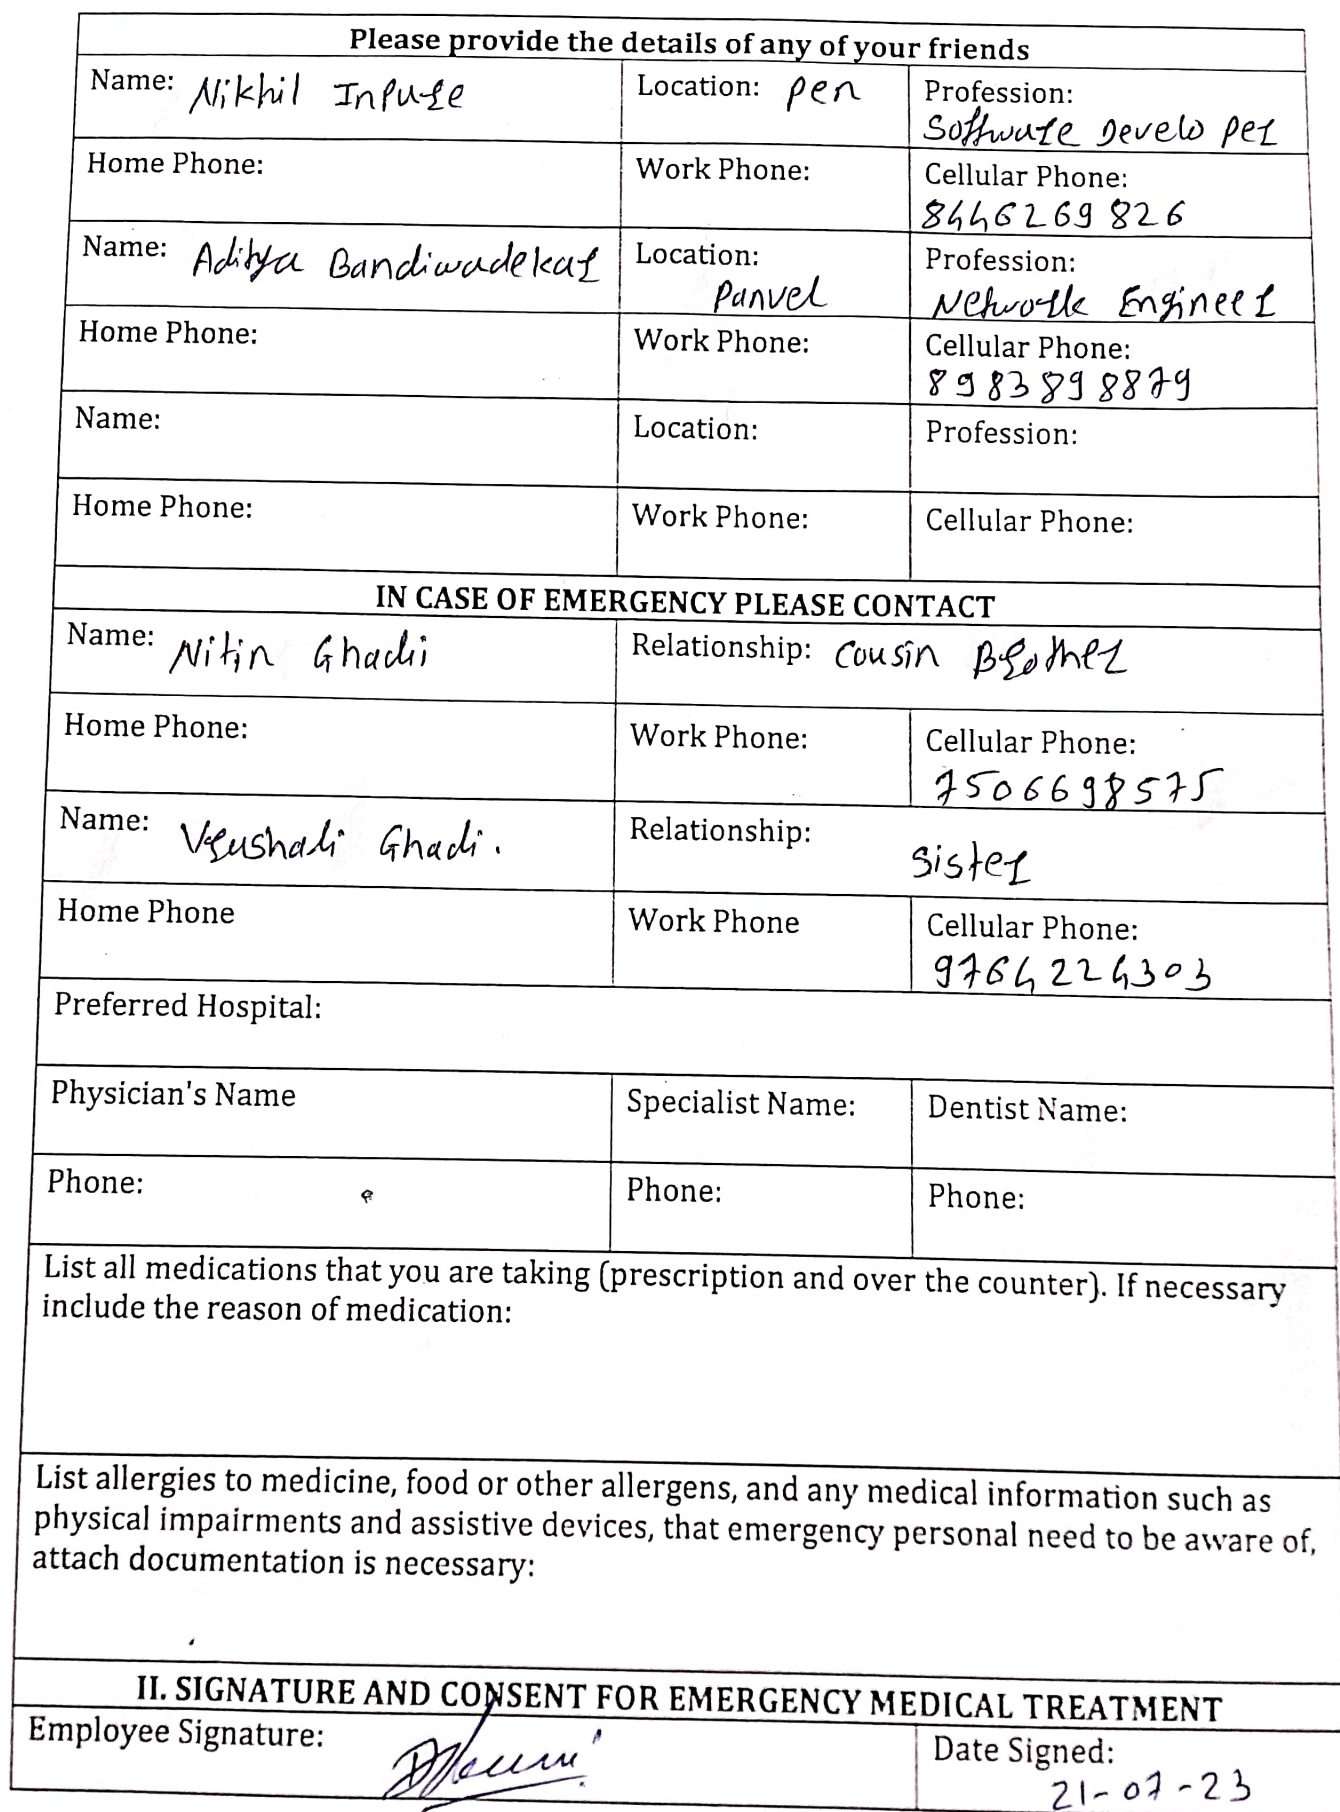 Please provide the details of any of your friends
Name: Nikhil Inpure Location: Pen Profession:
Software Developer
Home Phone: Work Phone: Cellular Phone:
8446269826
Name: Aditya Bandiwadekar Location: Profession:
Panvel Network Engineer
Home Phone: Work Phone: Cellular Phone:
8983898879
Name: Location: Profession:
Home Phone: Work Phone: Cellular Phone:
IN CASE OF EMERGENCY PLEASE CONTACT
Name: Nitin Ghadi Relationship: Cousin Brother
Home Phone: Work Phone: Cellular Phone:
7506698575
Name: Vrushali Ghadi. Relationship:
Sister
Home Phone Work Phone Cellular Phone:
9764224303
Preferred Hospital:
Physician's Name Specialist Name: Dentist Name:
Phone: Phone: Phone:
List all medications that you are taking (prescription and over the counter). If necessary
include the reason of medication:
List allergies to medicine, food or other allergens, and any medical information such as
physical impairments and assistive devices, that emergency personal need to be aware of,
attach documentation is necessary:
II. SIGNATURE AND CONSENT FOR EMERGENCY MEDICAL TREATMENT
Employee Signature: Date Signed:
21-07-23